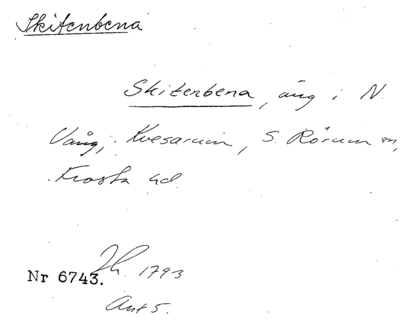 Skitenbena
Skitenbena, äng i N.
Vång, Kvesarum, S. Rörum sn,
Frosta hd.
Nr 6743. Jh. 1793
Akt 5.